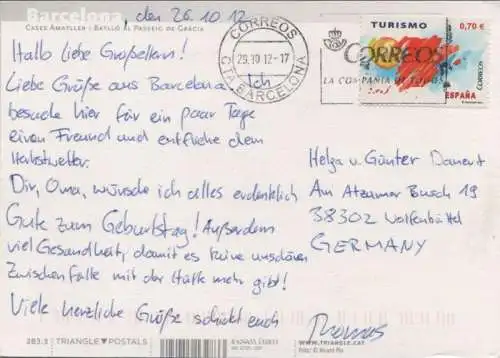 Barcelona, den 26.10.12
CASES AMATLLER I BATLLÓ. PASSEIG DE GRÀCIA
Hallo liebe Großeltern!
Liebe Grüße aus Barcelona. Ich
besuche hier für ein paar Tage
einen Freund und entfliehe dem
Herbstwetter.
Dir, Oma, wünsche ich alles erdenklich
Gute zum Geburtstag! Außerdem
viel Gesundheit, damit es keine
Zwischenfälle mit der Hüfte mehr gibt!
Viele herzliche Grüße schickt euch
Thomas
CORREOS
29.10.12-17
CTA BARCELONA
CORREOS
LA COMPAÑIA DE TODOS
TURISMO
0,70 €
CORREOS
ESPAÑA
Helga u. Günter Danert
Am Atzumer Busch 19
38302 Wolfenbüttel
GERMANY
283.3
TRIANGLE POSTALS
WWW.TRIANGLE.CAT